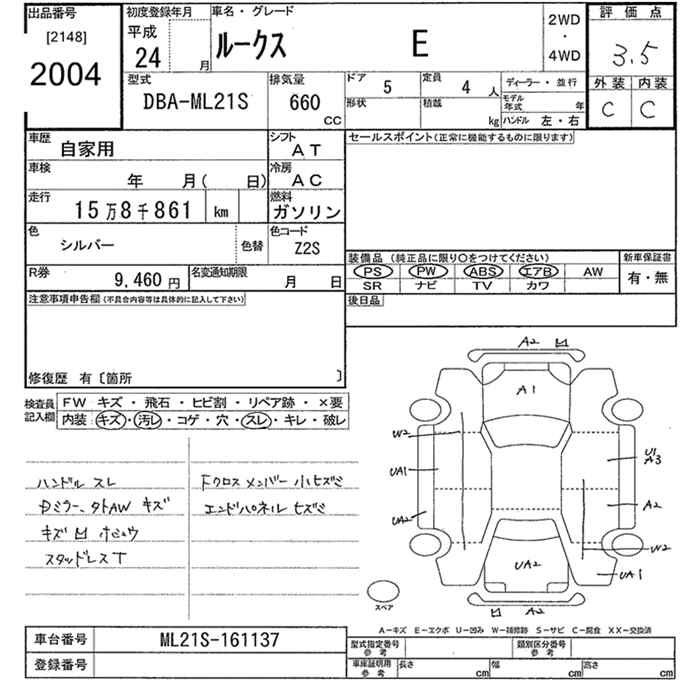 出品番号 初度登録年月 車名・グレード 2WD ・ 4WD 評価点
[2148] 平成
2004 24 月 ルークス E 3.5
型式 排気量 ドア 5 定員 4 人 ディーラー・並行 外装 内装
DBA-ML21S 660 CC 形状 積載 kg モデル年式 年 C C
ハンドル 左・右
車歴 自家用 シフト AT セールスポイント(正常に機能するものに限ります)
車検 年 月( 日) 冷房 AC
走行 15万8千861 km 燃料 ガソリン
色 シルバー 色替 色コード Z2S
装備品 (純正品に限り○をつけてください) 新車保証書
PS PW ABS エアB AW 有・無
SR ナビ TV カワ
R券 9,460円 名変通知期限 月 日
後日品
注意事項申告欄(不具合内容等は具体的に記入して下さい)
修復歴 有〔箇所 〕
検査員記入欄 FW キズ・飛石・ヒビ割・リペア跡・×要
内装:キズ・汚レ・コゲ・穴・スレ・キレ・破レ
ハンドル スレ
Dミラー、タトAW キズ
キズ 凹 ホシュウ
スタッドレスT
Fクロスメンバー 小ヒズミ
エンドパネル ヒズミ
A2 凹
A1
W2
U1
A3
UA1
A2
UA2
W2
UA2
UA1
凹 A2
スペア
A-キズ E-エクボ U-凹み W-補修跡 S-サビ C-腐食 XX-交換済
車台番号 ML21S-161137 型式指定番号 参考 類別区分番号 参考
登録番号 車庫証明用 参考 長さ cm 幅 cm 高さ cm